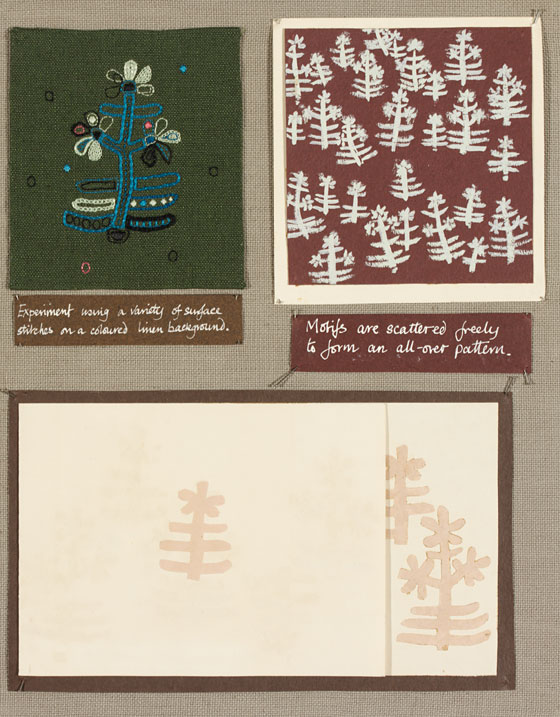 Experiment using a variety of surface
stitches on a coloured linen background.
Motifs are scattered freely
to form an all-over pattern.